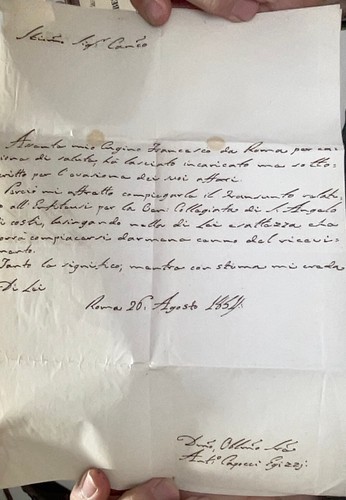 Sig.r Can.co
Assente mio Cugino Francesco da Roma per ca
ione di salute, ha lasciato incaricato me sotto
critto per l'evasione dei suoi affari.
Perciò mi affretto compiegarle il transunto relat
all' per la Collegiata di S. Angelo
costì, lusingando nella di Lei esattezza che
vorrà compiacersi darmene cenno del ricevi
mento.
Tanto le significo, mentre con stima mi credo
Di Lei
Roma 26. Agosto 1851.
Obb.mo
Ant.o Capocci